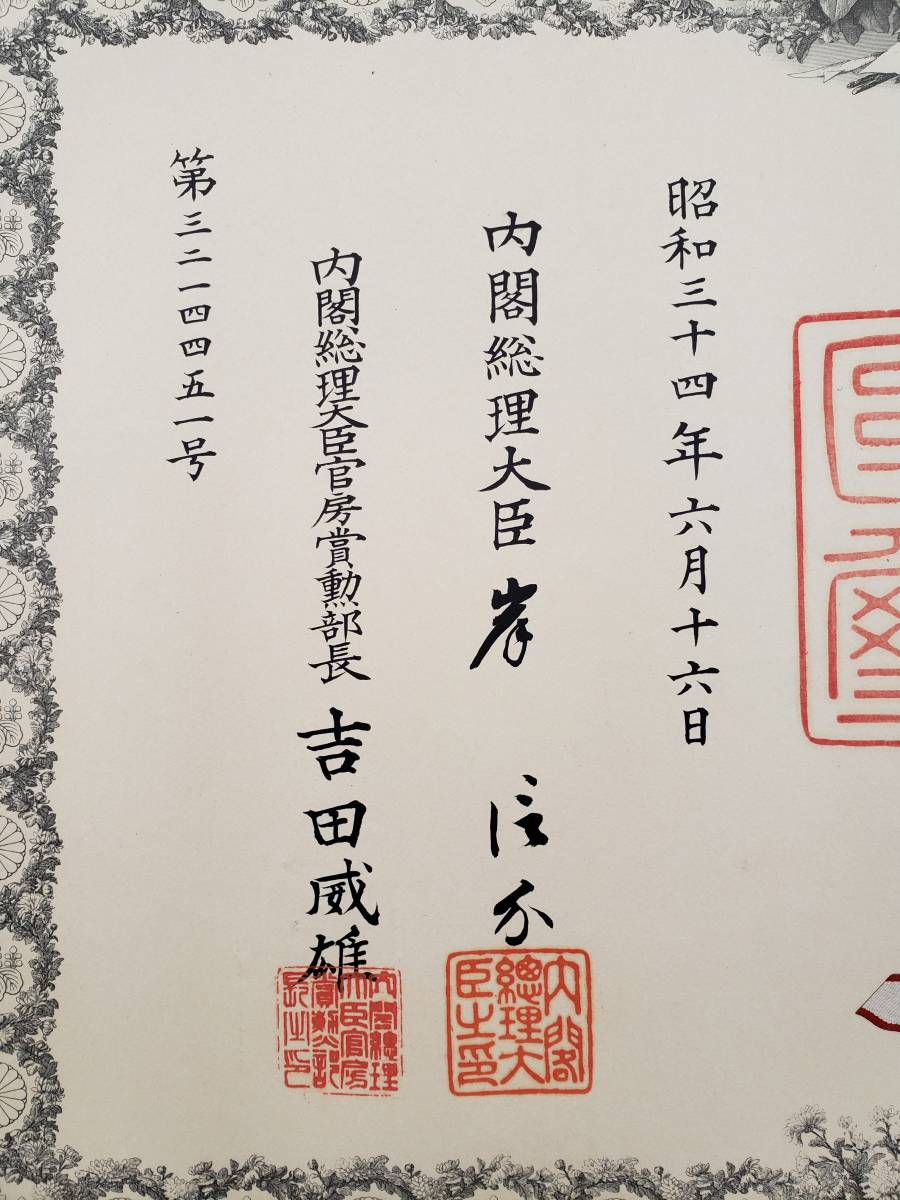 昭和三十四年六月十六日
内閣総理大臣 岸 信介
内閣総理大臣官房賞勲部長 吉田威雄
第三二一四四五一号
内閣總理大臣之印
内閣總理大臣官房賞勲部長之印